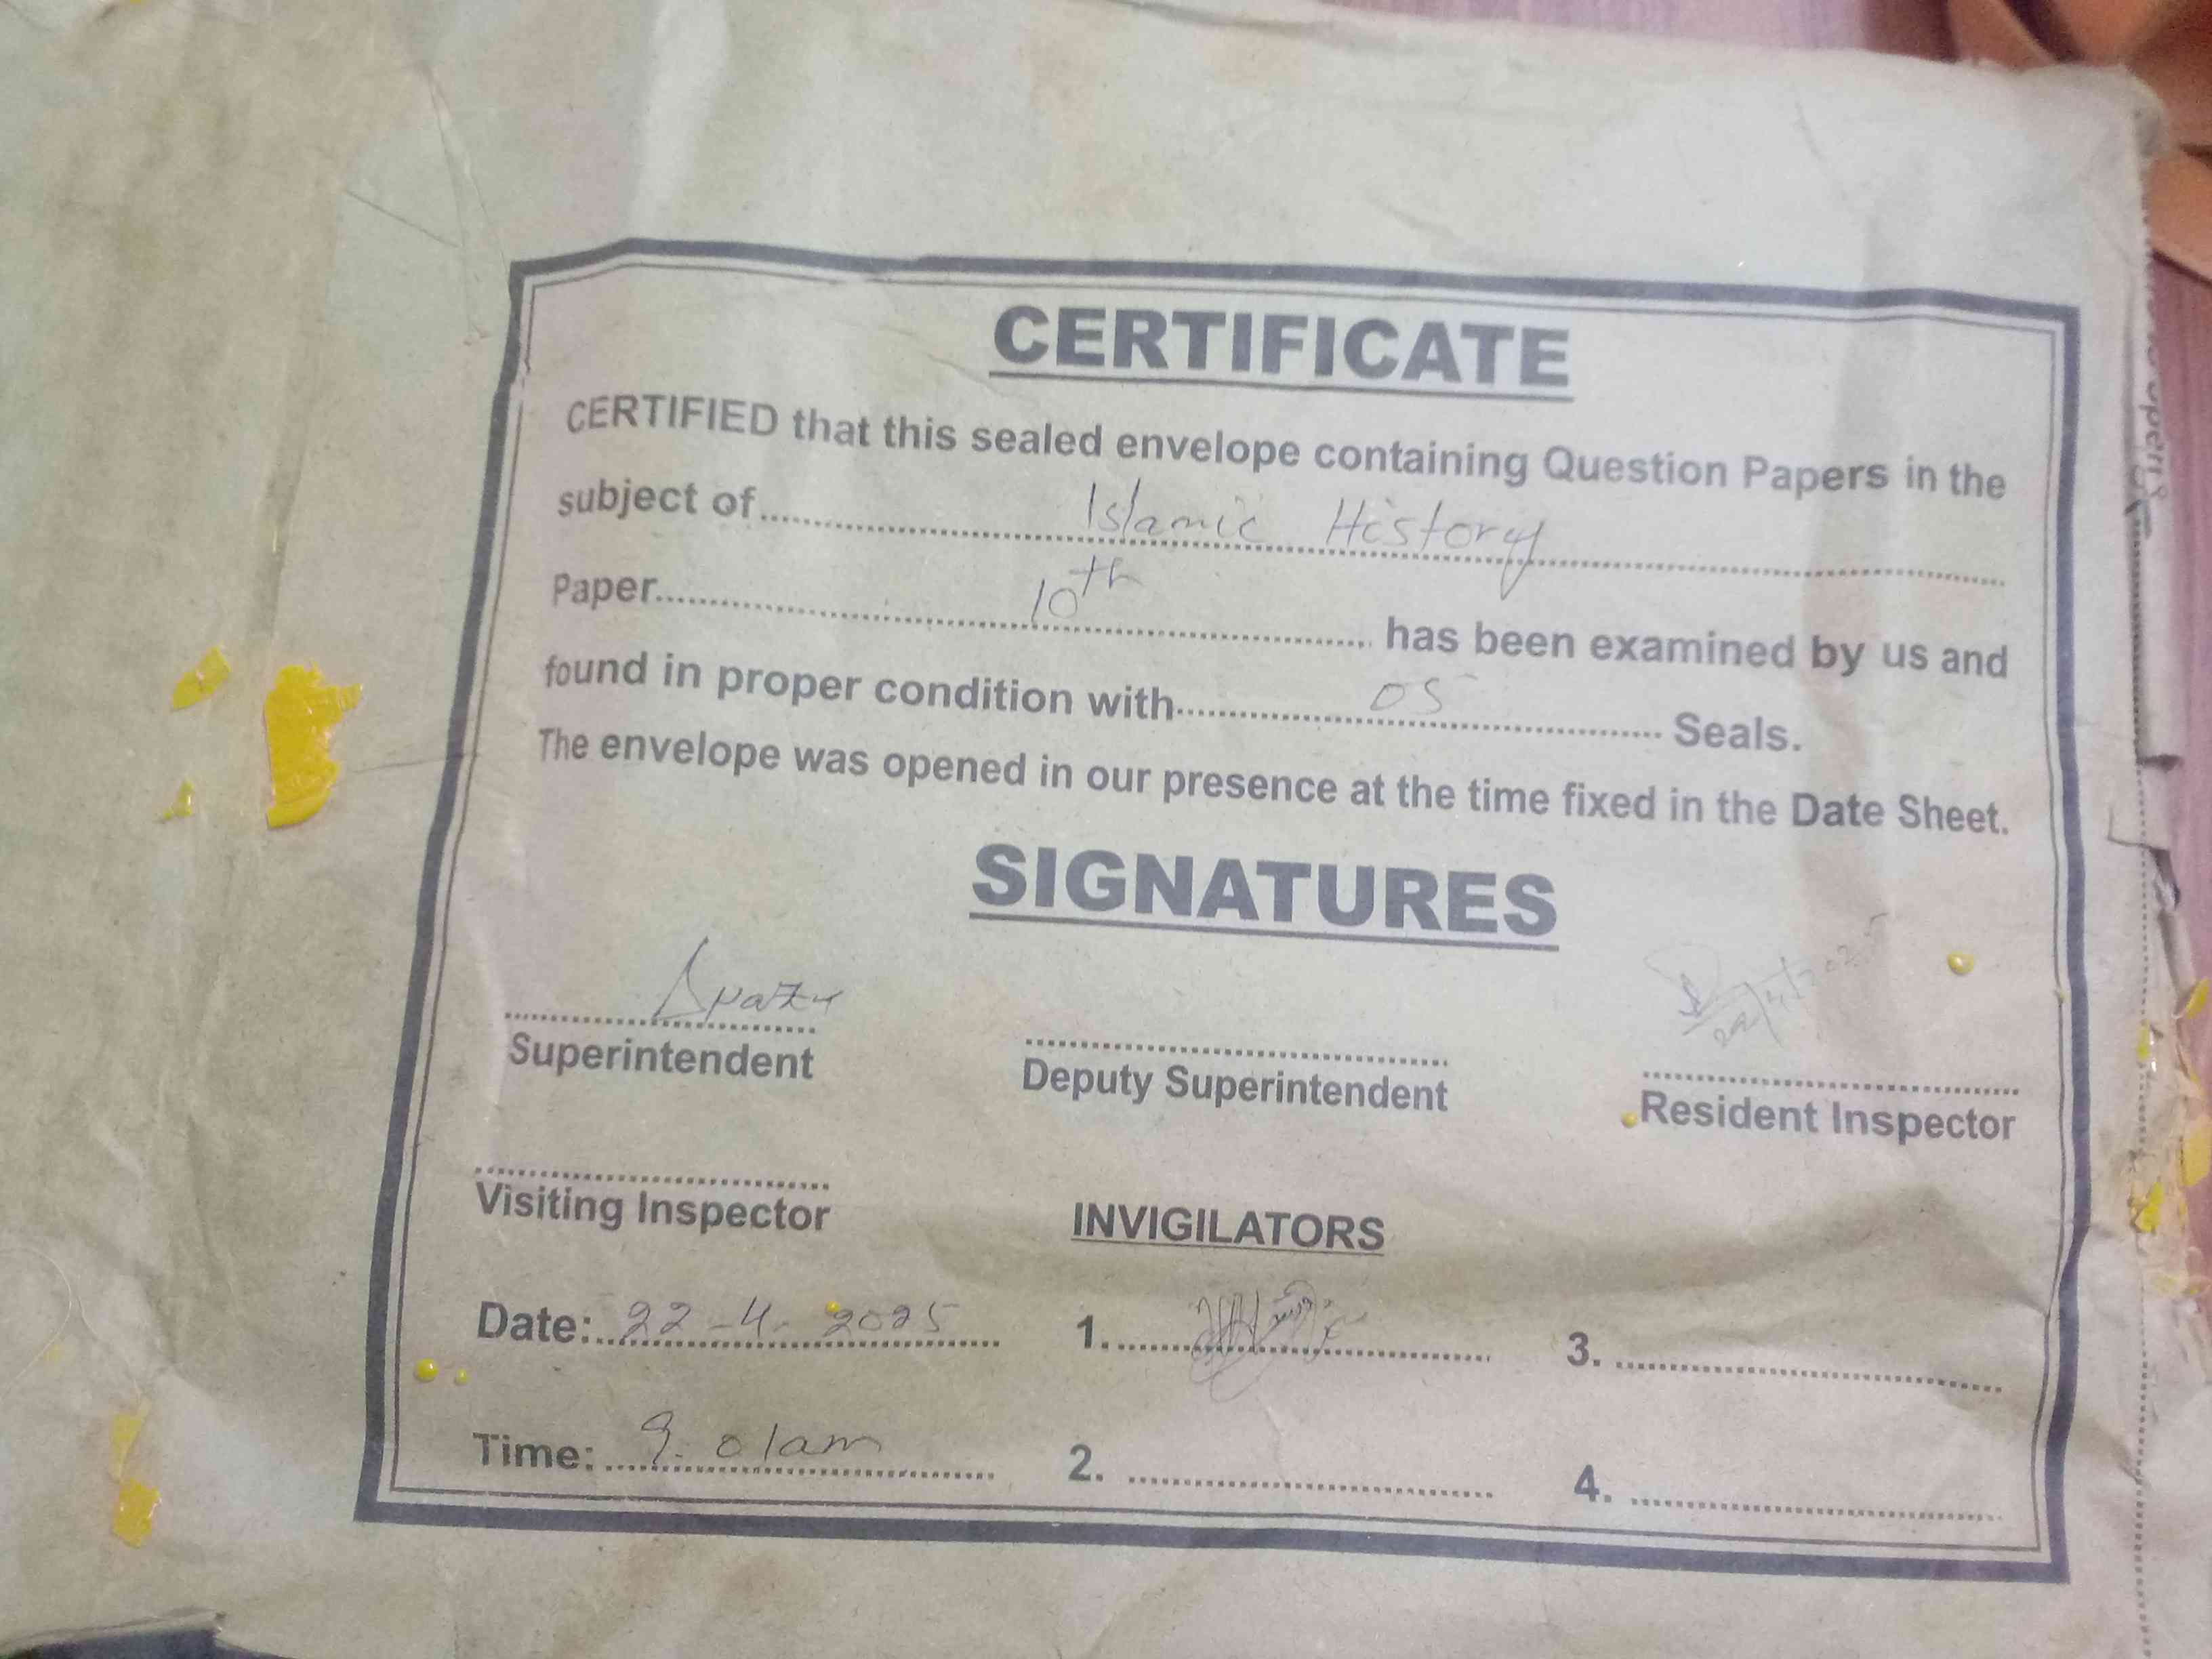 CERTIFICATE
CERTIFIED that this sealed envelope containing Question Papers in the
subject of Islamic History
Paper 10th has been examined by us and
found in proper condition with 05 Seals.
The envelope was opened in our presence at the time fixed in the Date Sheet.
SIGNATURES
22/4/2025
Superintendent Deputy Superintendent Resident Inspector
Visiting Inspector INVIGILATORS
Date: 22-4-2025 1. 3.
Time: 9.01am 2. 4.